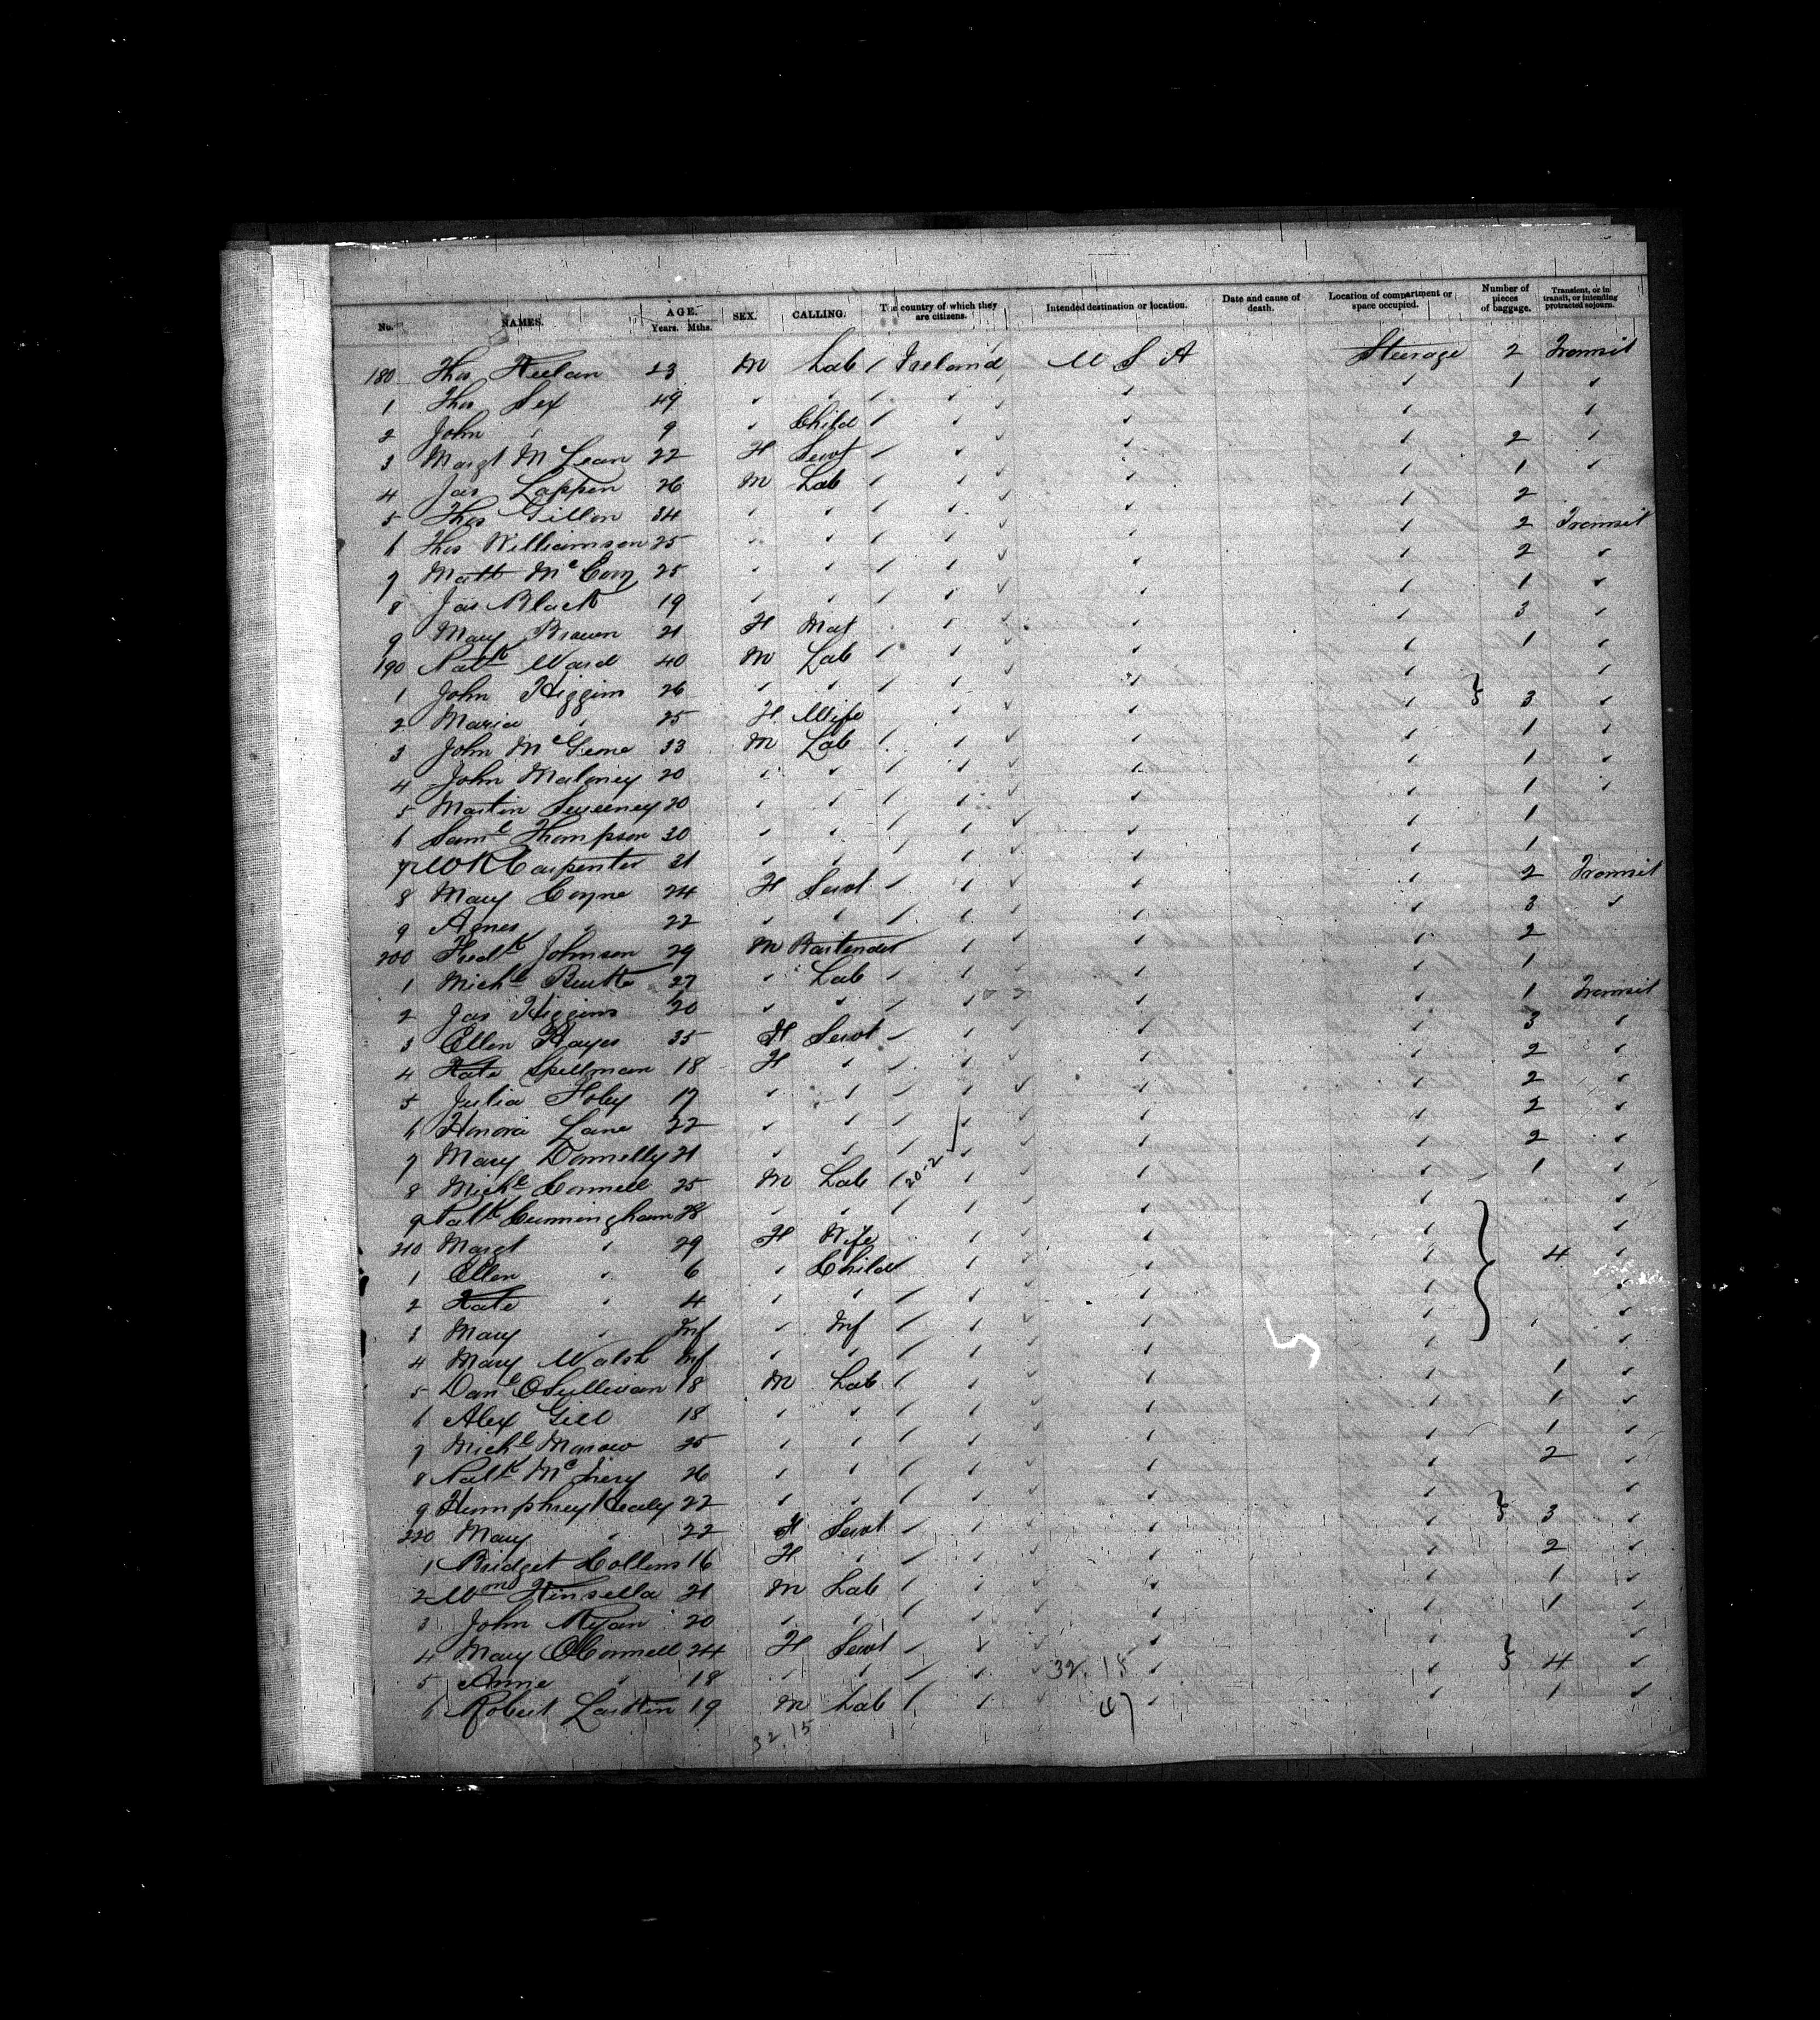 No. NAMES. AGE. Years. Mths. SEX. CALLING. The country of which they are citizens. Intended destination or location. Date and cause of death. Location of compartment or space occupied. Number of pieces of baggage. Transient, or in transit, or intending protracted sojourn.
180 Thos 23 M Lab / Ireland U S A Steerage 2 Transit
1 Thos Sex 49 ✓ ✓ / ✓ ✓ ✓ 1 ✓
2 John " 9 ✓ Child / ✓ ✓ ✓ ✓
3 Margt McLean 22 F Servt / ✓ ✓ ✓ 2 ✓
4 Jas Lappen 26 M Lab / ✓ ✓ ✓ 1 ✓
5 Thos Gillen 34 ✓ ✓ / ✓ ✓ ✓ 2
6 Thos Williamson 25 ✓ ✓ / ✓ ✓ ✓ 2 Transit
7 Matt 25 ✓ ✓ / ✓ ✓ ✓ 2 ✓
8 Jas Black 19 ✓ ✓ / ✓ ✓ ✓ 1 ✓
9 Mary Brown 21 F Mat ✓ ✓ ✓ 3 ✓
190 Patk Ward 40 M Lab / ✓ ✓ ✓ 1 ✓
1 John Higgins 26 ✓ ✓ / ✓ ✓ ✓ } ✓
2 Maria " 25 F Wife ✓ ✓ ✓ 3 ✓
3 John 33 M Lab / ✓ ✓ ✓ 1 ✓
4 John Maloney 20 ✓ ✓ / ✓ ✓ ✓ 1 ✓
5 Martin Sweeney 20 ✓ ✓ / ✓ ✓ ✓ 1 ✓
6 Saml Thompson 30 ✓ ✓ / ✓ ✓ ✓ 1
7 Carpenter 21 ✓ ✓ / ✓ ✓ ✓ 1
8 Mary Coyne 24 F Servt / ✓ ✓ ✓ 2 Transit
9 Agnes " 22 ✓ ✓ / ✓ ✓ ✓ 3 ✓
200 Fredk Johnson 29 M Bartender ✓ ✓ ✓ 2
1 Michl 27 ✓ Lab / ✓ ✓ ✓ 1
2 Jas Higgins 20 ✓ ✓ / ✓ ✓ ✓ 1 Transit
3 Ellen Hayes 35 F Servt / ✓ ✓ ✓ 3 ✓
4 Kate Spellman 18 F ✓ / ✓ ✓ ✓ 2 ✓
5 Julia Foley 17 ✓ ✓ / ✓ ✓ ✓ 2 ✓
6 Honora Lane 22 ✓ ✓ / ✓ ✓ ✓ 2 ✓
7 Mary Donnelly 21 ✓ ✓ / ✓ ✓ ✓ 2 ✓
8 Michl Connell 25 M Lab / 20-2 ✓ ✓ ✓ 1 ✓
9 Patk Cunningham 28 ✓ ✓ / ✓ ✓ ✓ ✓
210 Margt " 29 F Wife ✓ ✓ ✓ ✓
1 Ellen " 6 ✓ Child ✓ ✓ ✓ } 4 ✓
2 Kate " 4 ✓ ✓ / ✓ ✓ ✓ ✓
3 Mary " Inf ✓ Inf / ✓ ✓ ✓ ✓
4 Mary Walsh Inf ✓ ✓ / ✓ ✓ ✓ ✓
5 Danl OSullivan 18 M Lab / ✓ ✓ ✓ 1 ✓
6 Alex Gill 18 ✓ ✓ / ✓ ✓ ✓ 1 ✓
7 Michl 25 ✓ ✓ / ✓ ✓ ✓ 1 ✓
8 Patk 26 ✓ ✓ / ✓ ✓ ✓ 2 ✓
9 Humphrey Healy 22 ✓ ✓ / ✓ ✓ ✓ } ✓
220 Mary " 22 F Servt / ✓ ✓ ✓ 3 ✓
1 Bridget Collins 16 F ✓ / ✓ ✓ ✓ 2 ✓
2 Wm Kinsella 21 M Lab / ✓ ✓ ✓ 1 ✓
3 John Ryan 20 ✓ ✓ / ✓ ✓ ✓ 1 ✓
4 Mary OConnell 24 F Servt / ✓ ✓ ✓ } ✓
5 Anne " 18 ✓ ✓ / ✓ 32. 15 ✓ ✓ 4 ✓
6 Robert Larkin 19 M Lab / ✓ ✓ ✓ 1 ✓
32 15